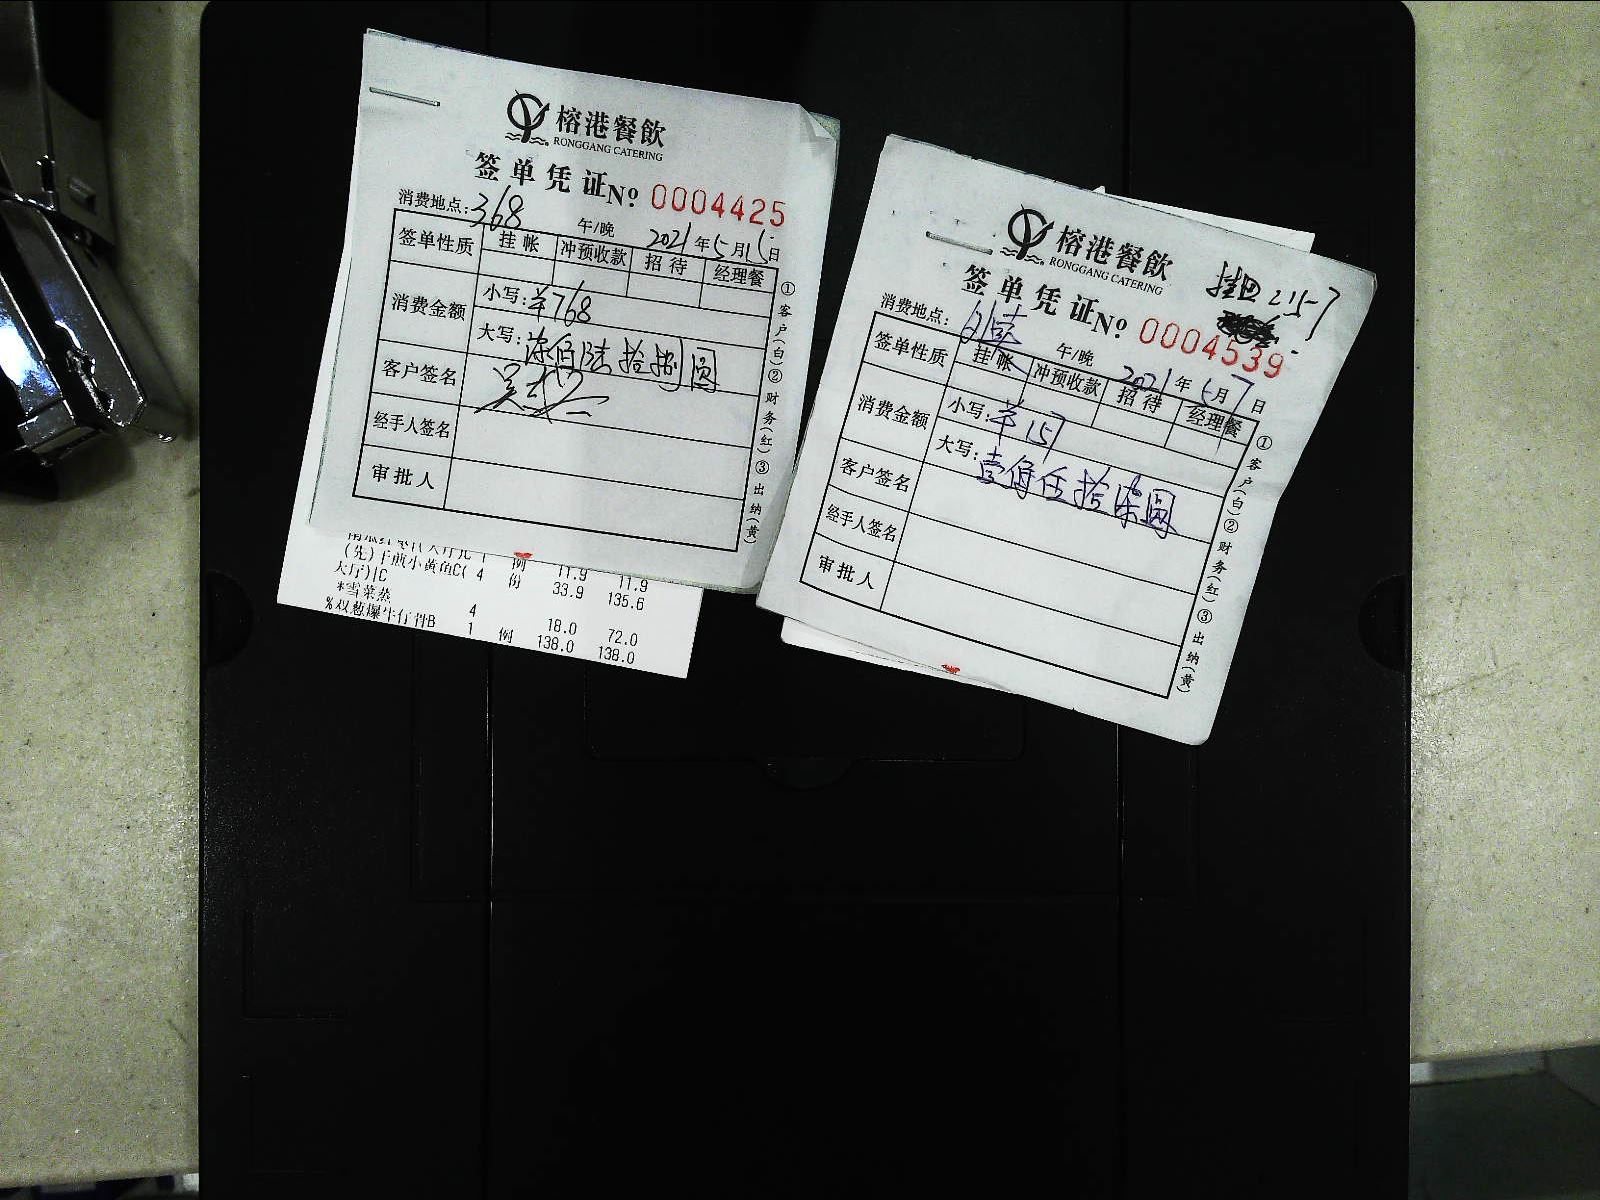 榕港餐飲
RONGGANG CATERING
签单凭证 No 0004425
消费地点：368 午/晚 2021年5月15日
签单性质 挂帐 冲预收款 招待 经理餐
消费金额 小写：¥768
大写：柒佰陆拾捌圆
客户签名
经手人签名
审批人
①客户(白)②财务(红)③出纳(黄)
例 11.9 11.9
(先)干煎小黄鱼C( 4 份 33.9 135.6
大厅)|C
*雪菜蒸 4 18.0 72.0
%双葱爆牛仔骨B 1 例 138.0 138.0
榕港餐飲
RONGGANG CATERING
签单凭证 No 0004539
消费地点： 午/晚 2021年5月7日
签单性质 挂帐 冲预收款 招待 经理餐
消费金额 小写：¥157
大写：壹佰伍拾柒圆
客户签名
经手人签名
审批人
①客户(白)②财务(红)③出纳(黄)